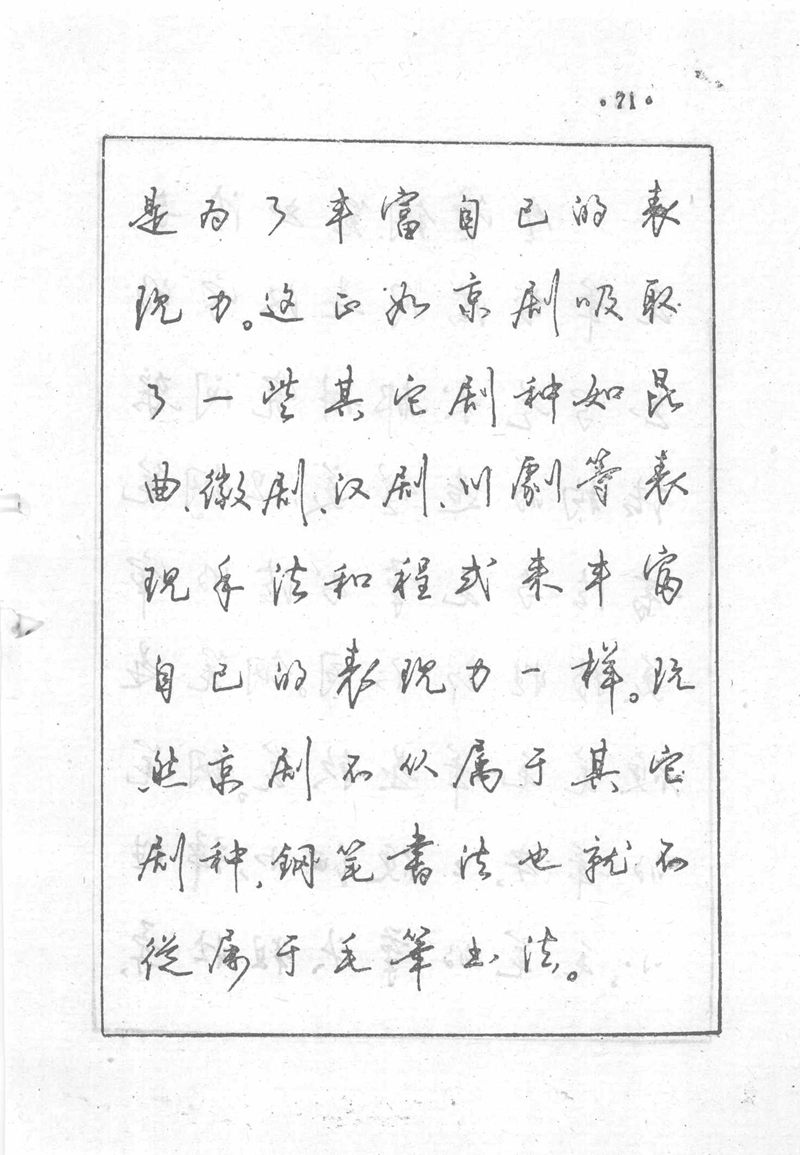 ·71·
是为了丰富自己的表
现力。这正如京剧吸取
了一些其它剧种如昆
曲、徽剧、汉剧、川劇等表
现手法和程式来丰富
自己的表现力一样。既
然京剧不从属于其它
剧种,钢笔書法也就不
從属于毛筆书法。